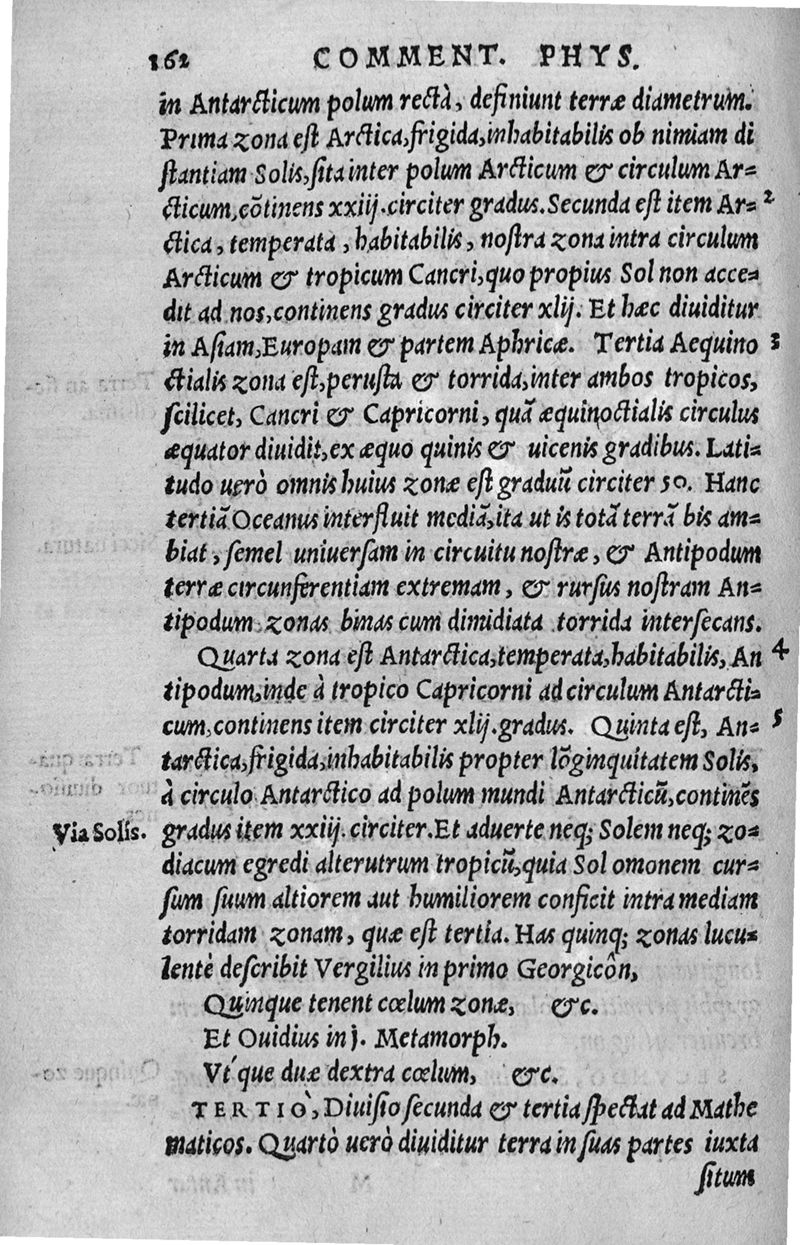 162 COMMENT. PHYS.
in Antarcticum polum rectà, definiunt terræ diametrum.
Prima zona est Arctica, frigida, inhabitabilis ob nimiam di
stantiam Solis, sita inter polum Arcticum & circulum Ar=
cticum, cõtinens xxiij. circiter gradus. Secunda est item Ar= 2
ctica, temperata, habitabilis, nostra zona intra circulum
Arcticum & tropicum Cancri, quo propius Sol non acce=
dit ad nos, continens gradus circiter xlij. Et hæc diuiditur
in Asiam, Europam & partem Aphricæ. Tertia Aequino 3
ctialis zona est, perusta & torrida, inter ambos tropicos,
scilicet, Cancri & Capricorni, quã æquinoctialis circulus
æquator diuidit, ex æquo quinis & uicenis gradibus. Lati=
tudo uerò omnis huius zonæ est graduũ circiter 50. Hanc
tertiã Oceanus interfluit mediã, ita ut is totã terrã bis am=
biat, semel uniuersam in circuitu nostræ, & Antipodum
terræ circunferentiam extremam, & rursus nostram An=
tipodum zonas binas cum dimidiata torrida intersecans.
Quarta zona est Antarctica, temperata, habitabilis, An 4
tipodum, inde à tropico Capricorni ad circulum Antarcti=
cum, continens item circiter xlij. gradus. Quinta est, An= 5
tarctica, frigida, inhabitabilis propter lõginquitatem Solis,
à circulo Antarctico ad polum mundi Antarcticũ, continẽs
Via Solis. gradus item xxiij. circiter. Et aduerte neq; Solem neq; zo=
diacum egredi alterutrum tropicũ, quia Sol omonem cur=
sum suum altiorem aut humiliorem conficit intra mediam
torridam zonam, quæ est tertia. Has quinq; zonas lucu=
lentè describit Vergilius in primo Georgicôn,
Quinque tenent cœlum zonæ, &c.
Et Ouidius in j. Metamorph.
Vt́que duæ dextra cœlum, &c.
TERTIÒ, Diuisio secunda & tertia spectat ad Mathe
maticos. Quartò uerò diuiditur terra in suas partes iuxta
situm